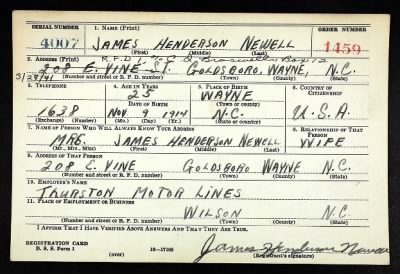 SERIAL NUMBER 1. NAME (Print) ORDER NUMBER
4007 JAMES HENDERSON NEWELL 1459
(First) (Middle) (Last)
2. ADDRESS (Print) R.F.D.
208 E. VINE ST. GOLDSBORO, WAYNE, N.C.
3/29/41 (Number and street or R. F. D. number) (Town) (County) (State)
3. TELEPHONE 4. AGE IN YEARS 5. PLACE OF BIRTH 6. COUNTRY OF CITIZENSHIP
25 WAYNE
DATE OF BIRTH (Town or county)
1638 NOV. 1914 N.C. U.S.A.
(Exchange) (Number) (Mo.) (Day) (Yr.) (State or country)
7. NAME OF PERSON WHO WILL ALWAYS KNOW YOUR ADDRESS 8. RELATIONSHIP OF THAT PERSON
MRS. JAMES HENDERSON NEWELL WIFE
(Mr., Mrs., Miss) (First) (Middle) (Last)
9. ADDRESS OF THAT PERSON
208 E. VINE GOLDSBORO WAYNE N.C.
(Number and street or R. F. D. number) (Town) (County) (State)
10. EMPLOYER'S NAME
THURSTON MOTOR LINES
11. PLACE OF EMPLOYMENT OR BUSINESS
WILSON N.C.
(Number and street or R. F. D. number) (Town) (County) (State)
I AFFIRM THAT I HAVE VERIFIED ABOVE ANSWERS AND THAT THEY ARE TRUE.
REGISTRATION CARD
D. S. S. Form 1 (over) 16-17105 James Henderson Newell
(Registrant's signature)